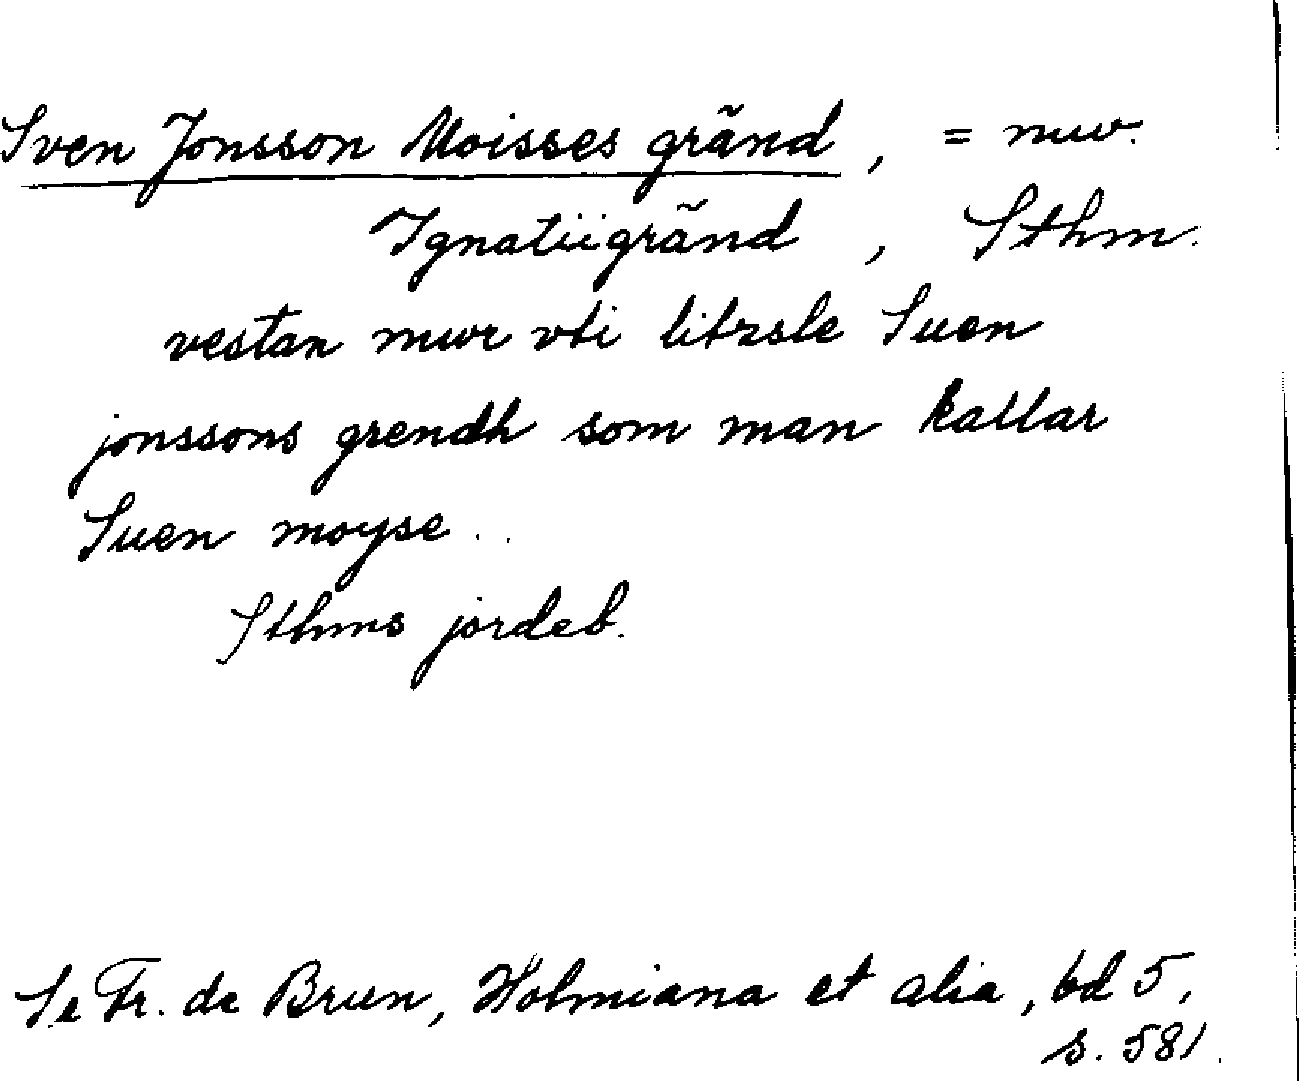 Sven Jonsson Moisses gränd, = nuv.
Ignatiigränd, Sthm.
vestan mwr vti litzsle Suen
jonssons grendh som man kallar
Suen moyse . .
Sthms jordeb.
Se Fr. de Brun, Holmiana et alia, bd 5,
s. 581.